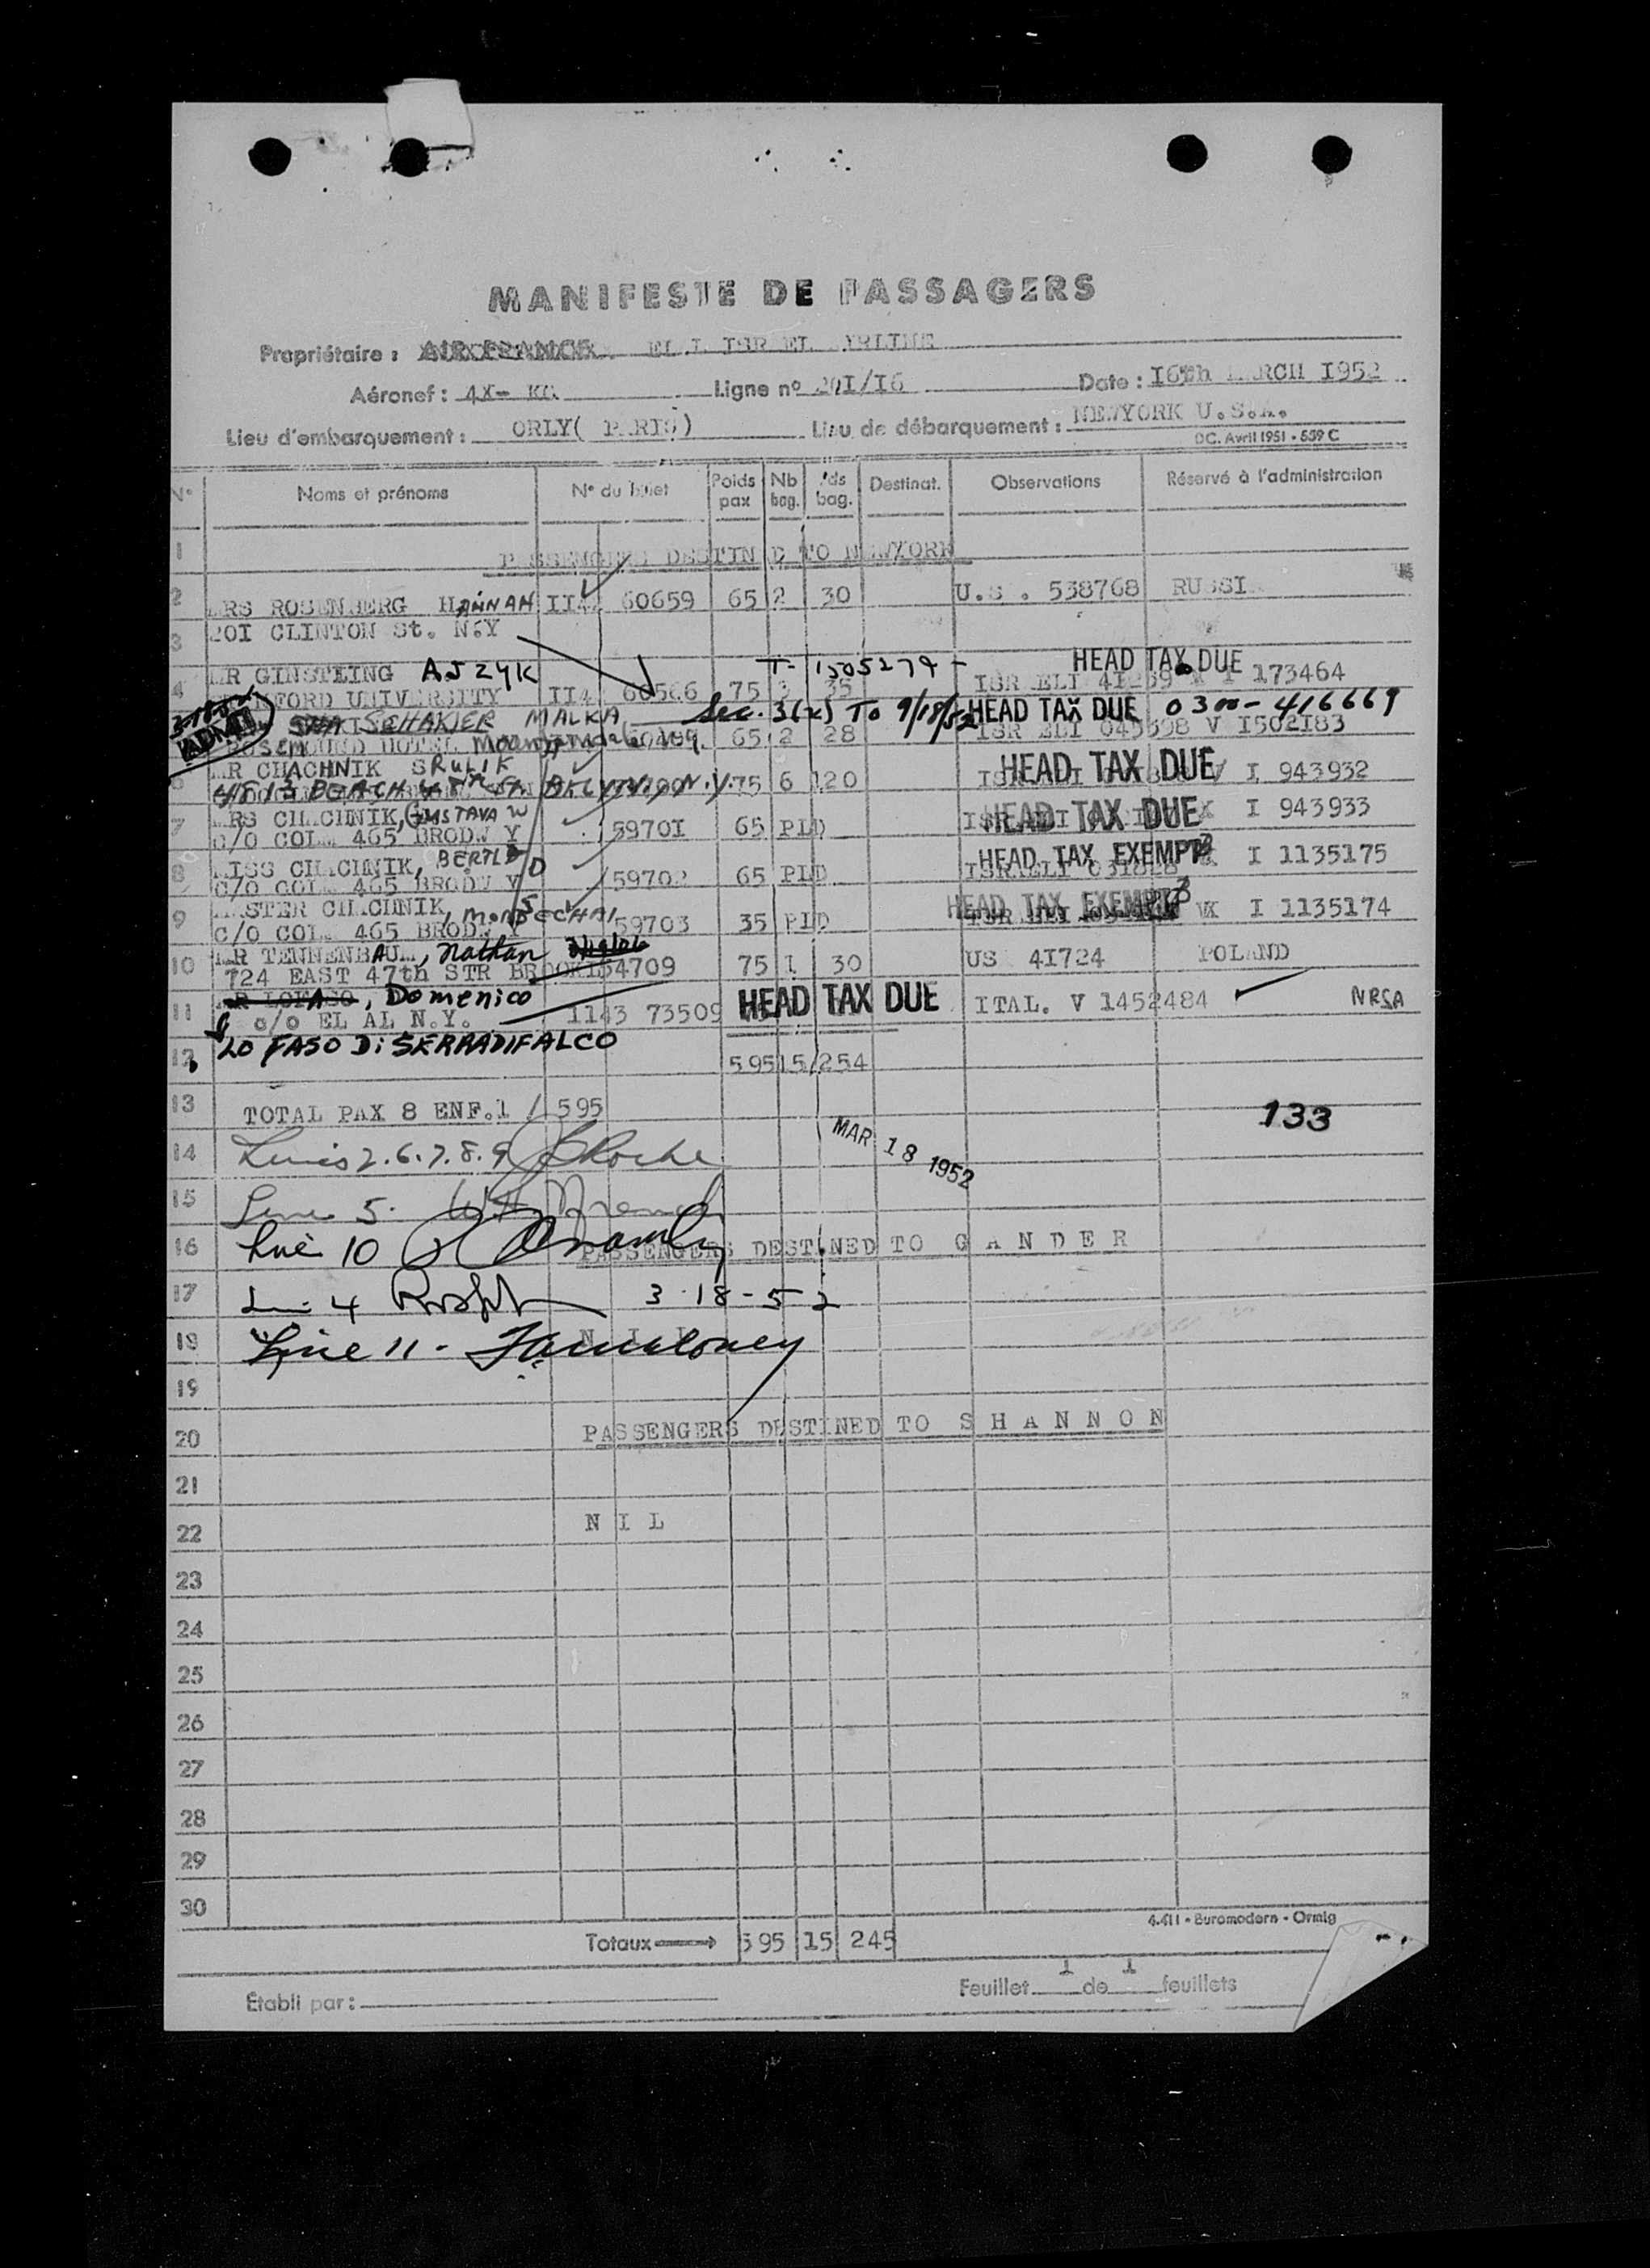 MANIFESTE DE PASSAGERS
Propriétaire : AIR FRANCE EL L ISR EL IRLINE
Aéronef : 4X- Ligne nº 201/I6 Date : I6th RCH I952
Lieu d'embarquement : ORLY( P RIS) Lieu de débarquement : NEWYORK U.S.A.
DC. Avril 1951 - 559 C
Nº Noms et prénoms Nº du billet Poids pax Nb bag. Pds bag. Destinat. Observations Réservé à l'administration
1 PASSENGERS DESTIN D TO NEWYORK
2 MRS ROSENBERG HANNAH II4 60659 65 2 30 U.S . 538768 RUSSI
3 20I CLINTON St. N.Y
MR GINSTLING AJZYK T- 1505279 - HEAD TAX DUE
4 FORD UNIVERSITY II4 60566 75 3 35 ISR ELI 173464
ADMIT SCHAKIER MALKA Sec. 3(2) To 9/18/52 HEAD TAX DUE 0300-416669
HOTEL 65 2 28 ISR ELI V I502I83
MR CHACHNIK SRULIK
6 BEACH 75 6 120 HEAD TAX DUE I 943932
7 MRS CH CHNIK, GUSTAVA W
C/O COL 465 BRODW Y 5970I 65 PLD HEAD TAX DUE I 943933
8 MISS CH CHNIK, BERTL
C/O COL 465 BRODW Y 59702 65 PLD HEAD TAX EXEMPT I 1135175
9 MASTER CH CHNIK, MORDECHAI
C/O COL 465 BRODW Y 59703 35 PLD HEAD TAX EXEMPT I 1135174
10 MR TENNENBAUM, Nathan
724 EAST 47th STR BROOK 54709 75 1 30 US 41724 POLAND
11 MR LOFASO, Domenico
c/o EL AL N.Y. 1143 73509 HEAD TAX DUE ITAL. V 1452484 NRSA
12 LO FASO Di SERRADIFALCO 595 15/254
13 TOTAL PAX 8 ENF.1 / 595 133
14 Lines 2.6.7.8.9 Roche MAR 18 1952
15 Line 5.
16 Line 10 PASSENGERS DESTINED TO G A N D E R
17 Line 4 3-18-52
18 Line 11 - N I L
19
20 PASSENGERS DESTINED TO S H A N N O N
21
22 N I L
23
24
25
26
27
28
29
30
4.411 - Buromodern - Ormig
Totaux 595 15 245
Feuillet 1 de 1 feuillets
Établi par :